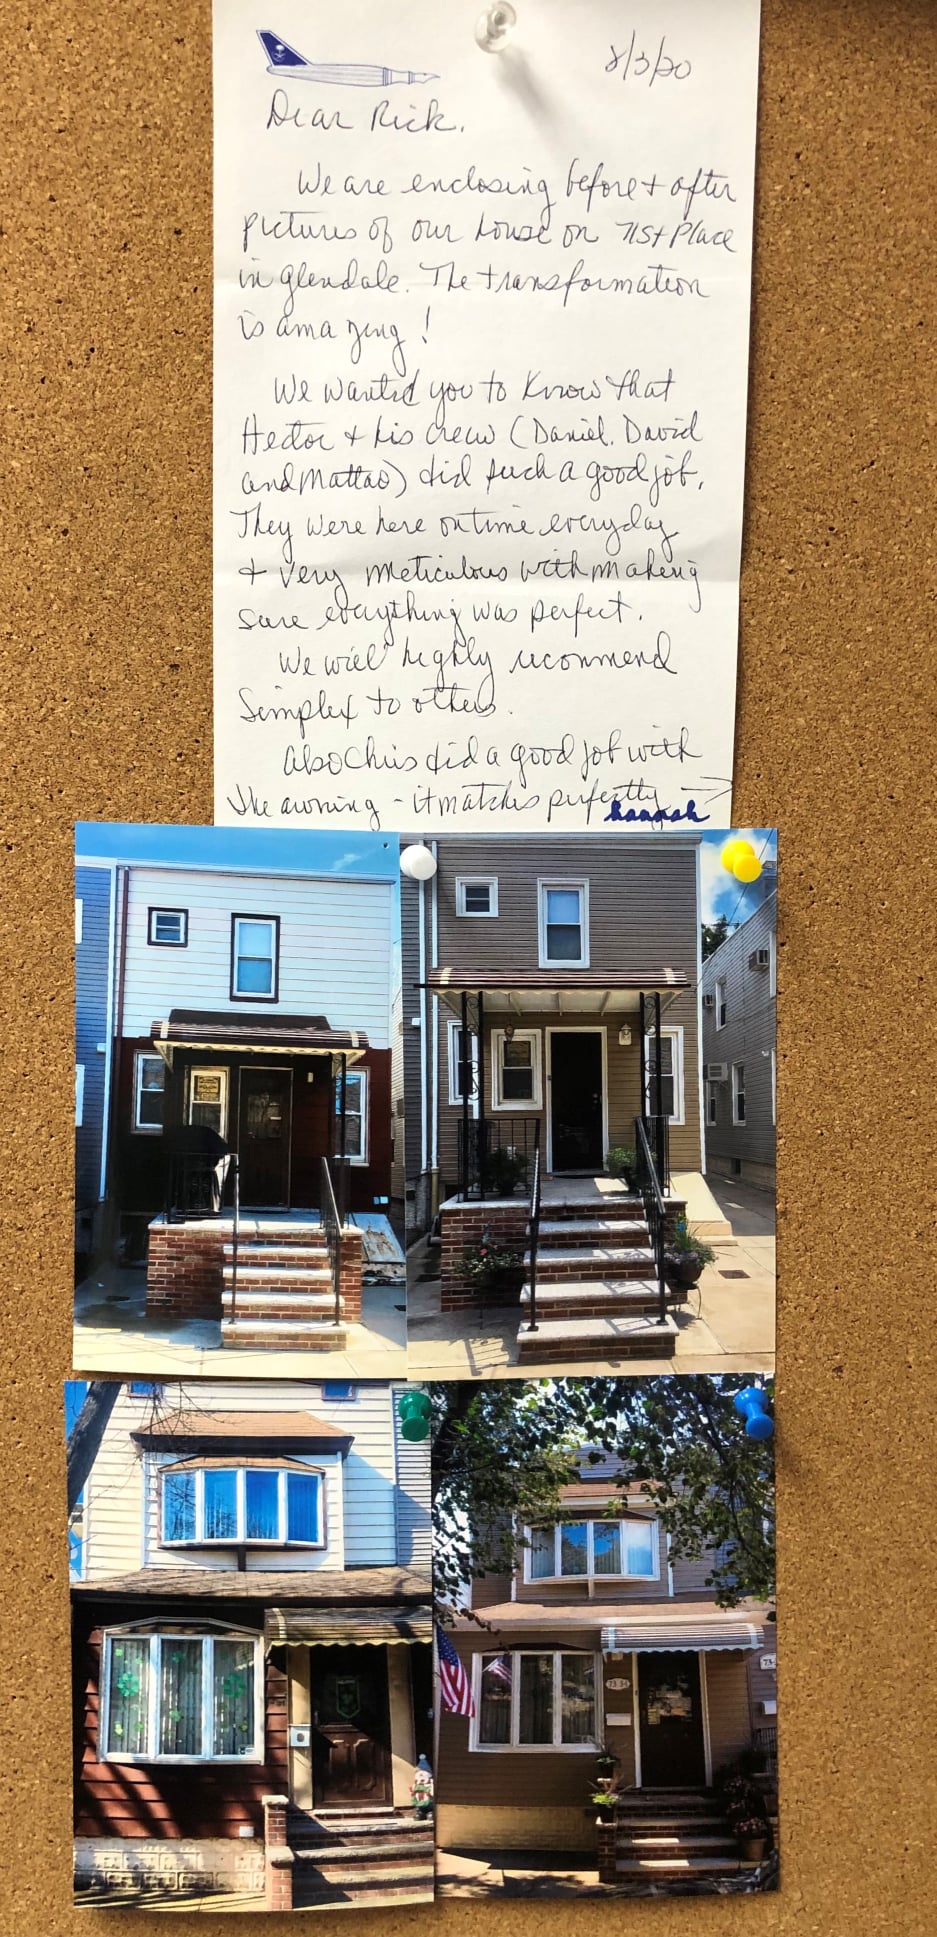 8/3/20
Dear Rick.
We are enclosing before + after
pictures of our house on 71st Place
in glendale. The transformation
is amazing!
We wanted you to know that
Hector + his crew (Daniel, David
and Mattao) did such a good job.
They were here on time everyday
+ very meticulous with making
sure everything was perfect.
We will highly recommend
Simplex to others.
Also Chris did a good job with
the awning - it matches perfectly →
hannah
73-34
73-